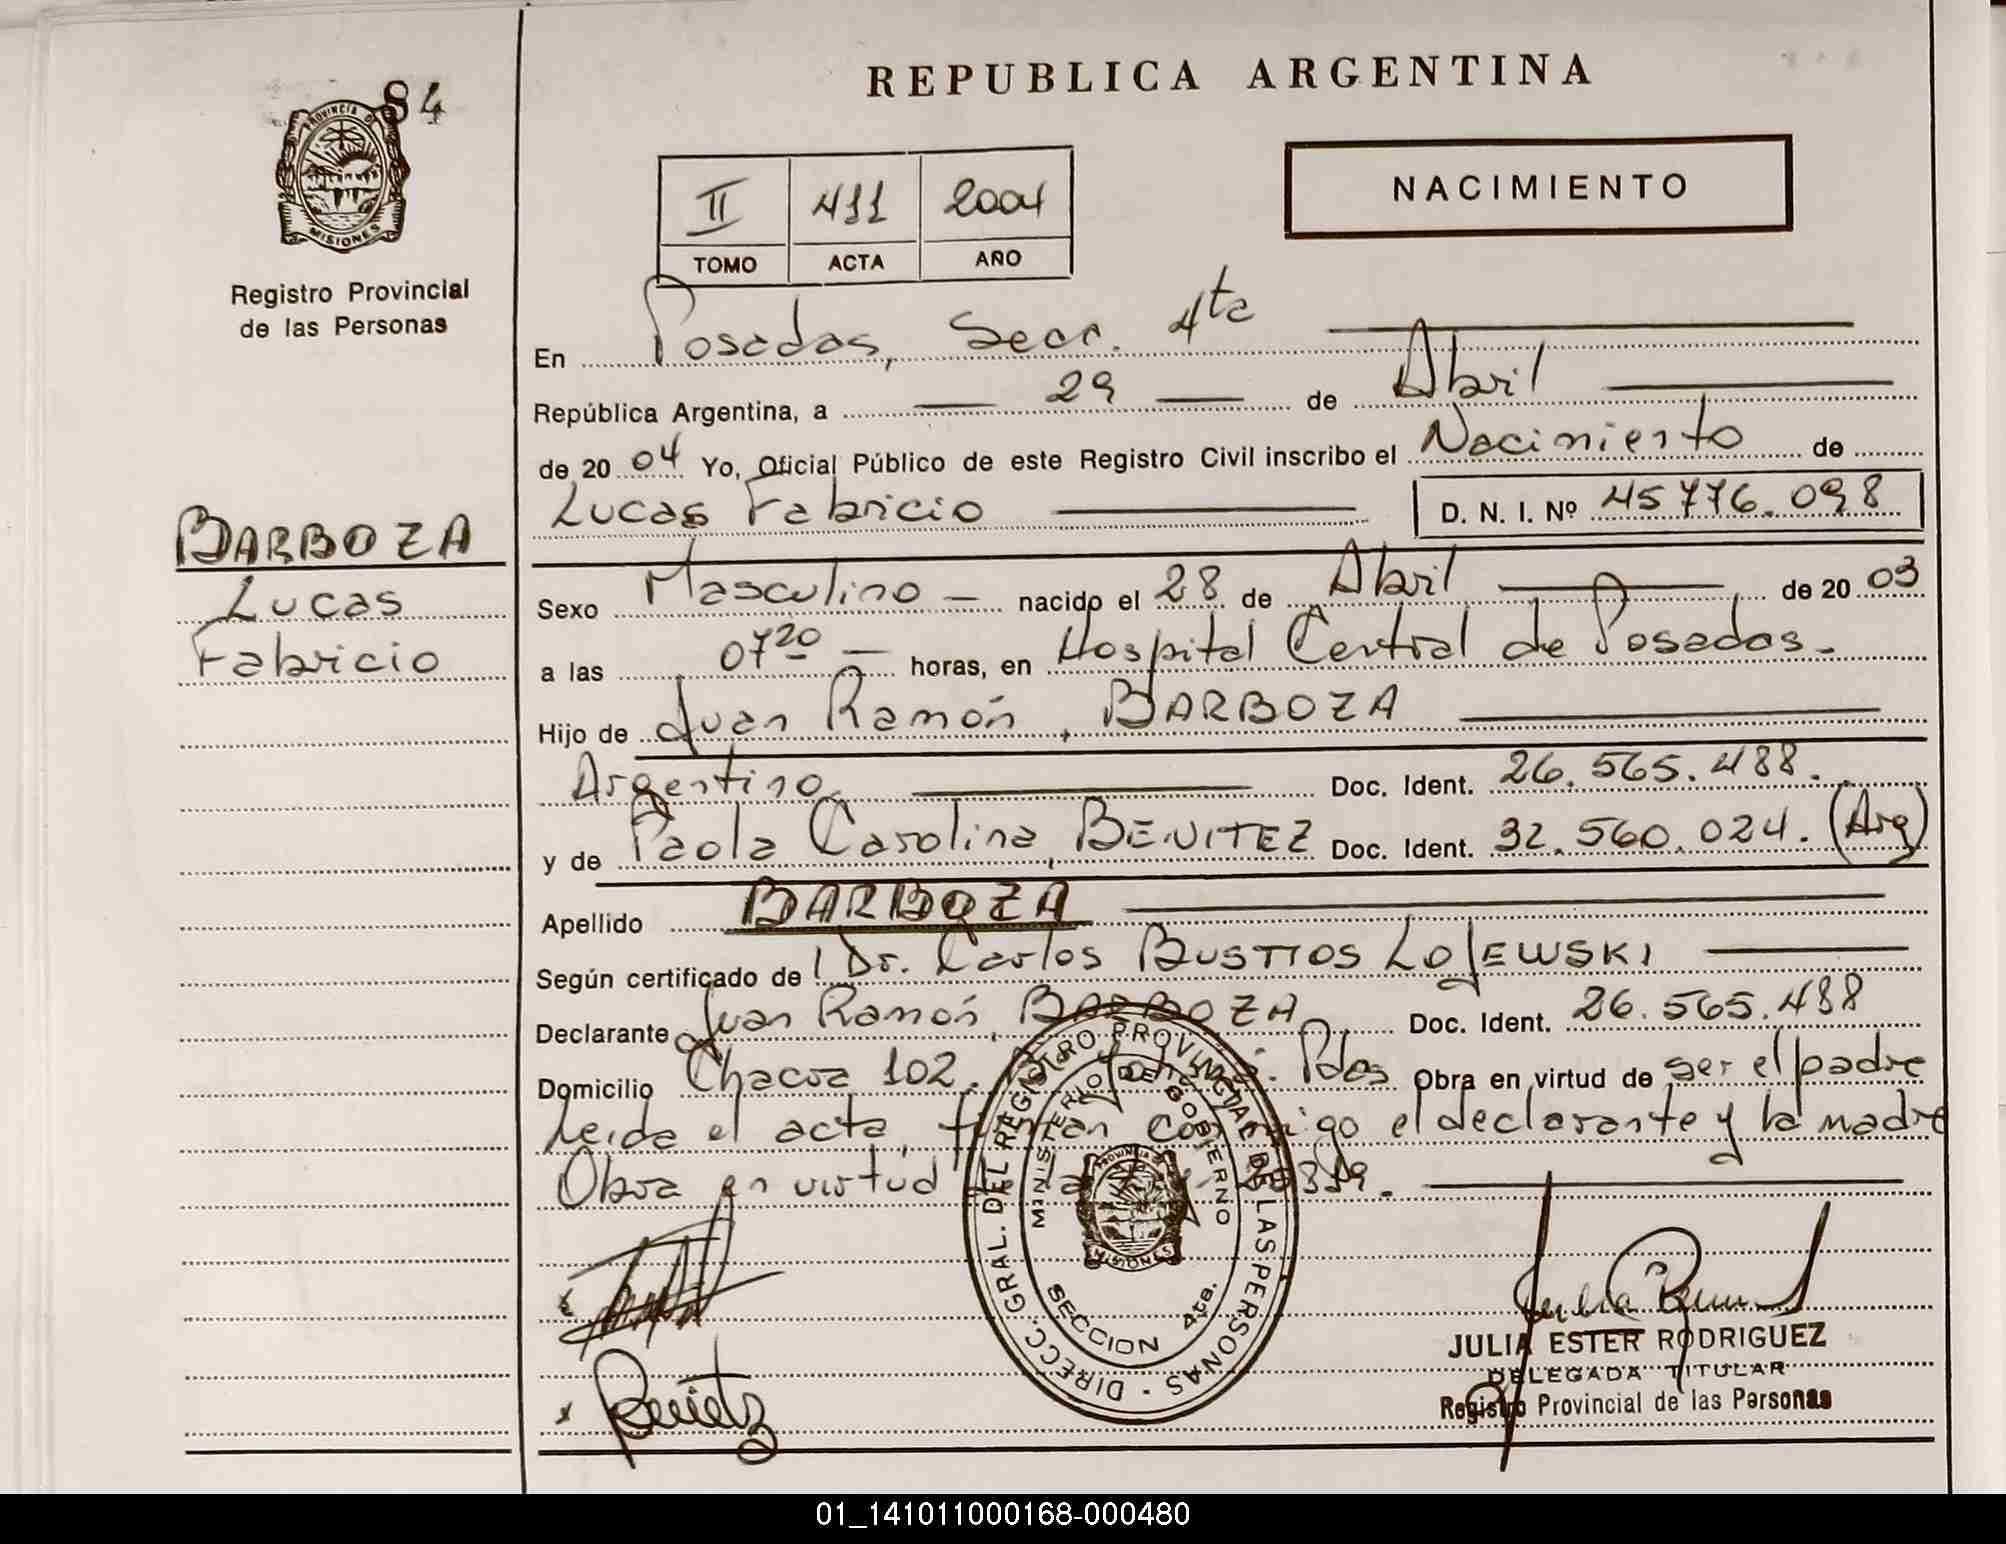 84
PROVINCIA DE
MISIONES
Registro Provincial
de las Personas
BARBOZA
Lucas
Fabricio
REPUBLICA ARGENTINA
II 411 2004
TOMO ACTA AÑO
NACIMIENTO
En Posadas, Secc. 4ta
República Argentina, a 29 de Abril
de 2004 Yo, Oficial Público de este Registro Civil inscribo el Nacimiento de
Lucas Fabricio D. N. I. Nº 45776.098
Sexo Masculino nacido el 28 de Abril de 2003
a las 07 20 horas, en Hospital Central de Posadas.
Hijo de Juan Ramón, BARBOZA
Argentino. Doc. Ident. 26.565.488.
y de Paola Carolina, BENITEZ Doc. Ident. 32.560.024. (Arg)
Apellido BARBOZA
Según certificado de Dr. Carlos BUSTIOS LOJEWSKI
Declarante Juan Ramón, BARBOZA Doc. Ident. 26.565.488
Domicilio Chacra 102, Pdas Obra en virtud de ser el padre
Leída el acta, firman conmigo el declarante y la madre
Obra en virtud
DIRECC. GRAL. DEL REGISTRO PROVINCIAL DE LAS PERSONAS
MINISTERIO DE GOBIERNO
PROVINCIA DE
MISIONES
SECCION 4ta.
Benitez
JULIA ESTER RODRIGUEZ
DELEGADA TITULAR
Registro Provincial de las Personas
01_141011000168-000480